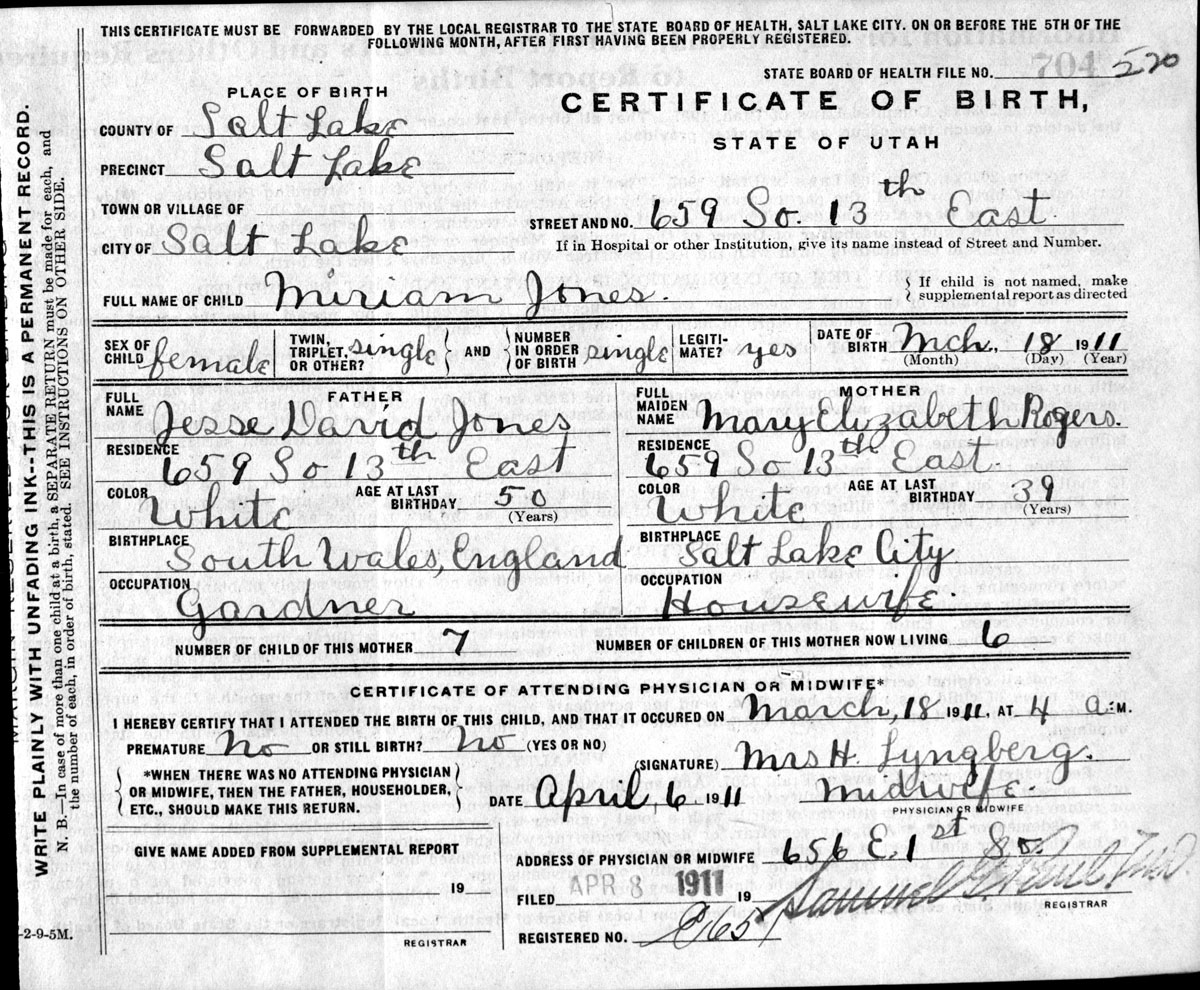 THIS CERTIFICATE MUST BE FORWARDED BY THE LOCAL REGISTRAR TO THE STATE BOARD OF HEALTH, SALT LAKE CITY. ON OR BEFORE THE 5TH OF THE
FOLLOWING MONTH, AFTER FIRST HAVING BEEN PROPERLY REGISTERED.
STATE BOARD OF HEALTH FILE NO. 704 520
PLACE OF BIRTH
CERTIFICATE OF BIRTH,
STATE OF UTAH
COUNTY OF Salt Lake
PRECINCT Salt Lake
TOWN OR VILLAGE OF
CITY OF Salt Lake
STREET AND NO. 659 So. 13th East
If in Hospital or other Institution, give its name instead of Street and Number.
FULL NAME OF CHILD Miriam Jones.
If child is not named, make
supplemental report as directed
SEX OF CHILD female
TWIN, TRIPLET, OR OTHER? single
AND
NUMBER IN ORDER OF BIRTH single
LEGITI-MATE? yes
DATE OF BIRTH Mch., 18 1911
(Month) (Day) (Year)
FATHER
FULL NAME Jesse David Jones
RESIDENCE
659 So 13th East
COLOR White
AGE AT LAST BIRTHDAY 50
(Years)
BIRTHPLACE
South Wales, England
OCCUPATION
Gardner
MOTHER
FULL MAIDEN NAME Mary Elizabeth Rogers.
RESIDENCE
659 So 13th East.
COLOR White
AGE AT LAST BIRTHDAY 39
(Years)
BIRTHPLACE
Salt Lake City
OCCUPATION
Housewife.
NUMBER OF CHILD OF THIS MOTHER 7
NUMBER OF CHILDREN OF THIS MOTHER NOW LIVING 6
CERTIFICATE OF ATTENDING PHYSICIAN OR MIDWIFE*
I HEREBY CERTIFY THAT I ATTENDED THE BIRTH OF THIS CHILD, AND THAT IT OCCURED ON March, 18 1911, AT 4 a.M.
PREMATURE No OR STILL BIRTH? No (YES OR NO)
*WHEN THERE WAS NO ATTENDING PHYSICIAN
OR MIDWIFE, THEN THE FATHER, HOUSEHOLDER,
ETC., SHOULD MAKE THIS RETURN.
(SIGNATURE) Mrs H. Lyngberg.
DATE April, 6 1911 midwife.
PHYSICIAN OR MIDWIFE
GIVE NAME ADDED FROM SUPPLEMENTAL REPORT
19
REGISTRAR
ADDRESS OF PHYSICIAN OR MIDWIFE 656 E. 1st So.
FILED APR 8 1911 19
REGISTRAR
REGISTERED NO.
WRITE PLAINLY WITH UNFADING INK--THIS IS A PERMANENT RECORD.
N. B.—In case of more than one child at a birth, a SEPARATE RETURN must be made for each, and
the number of each, in order of birth, stated. SEE INSTRUCTIONS ON OTHER SIDE.
-2-9-5M.